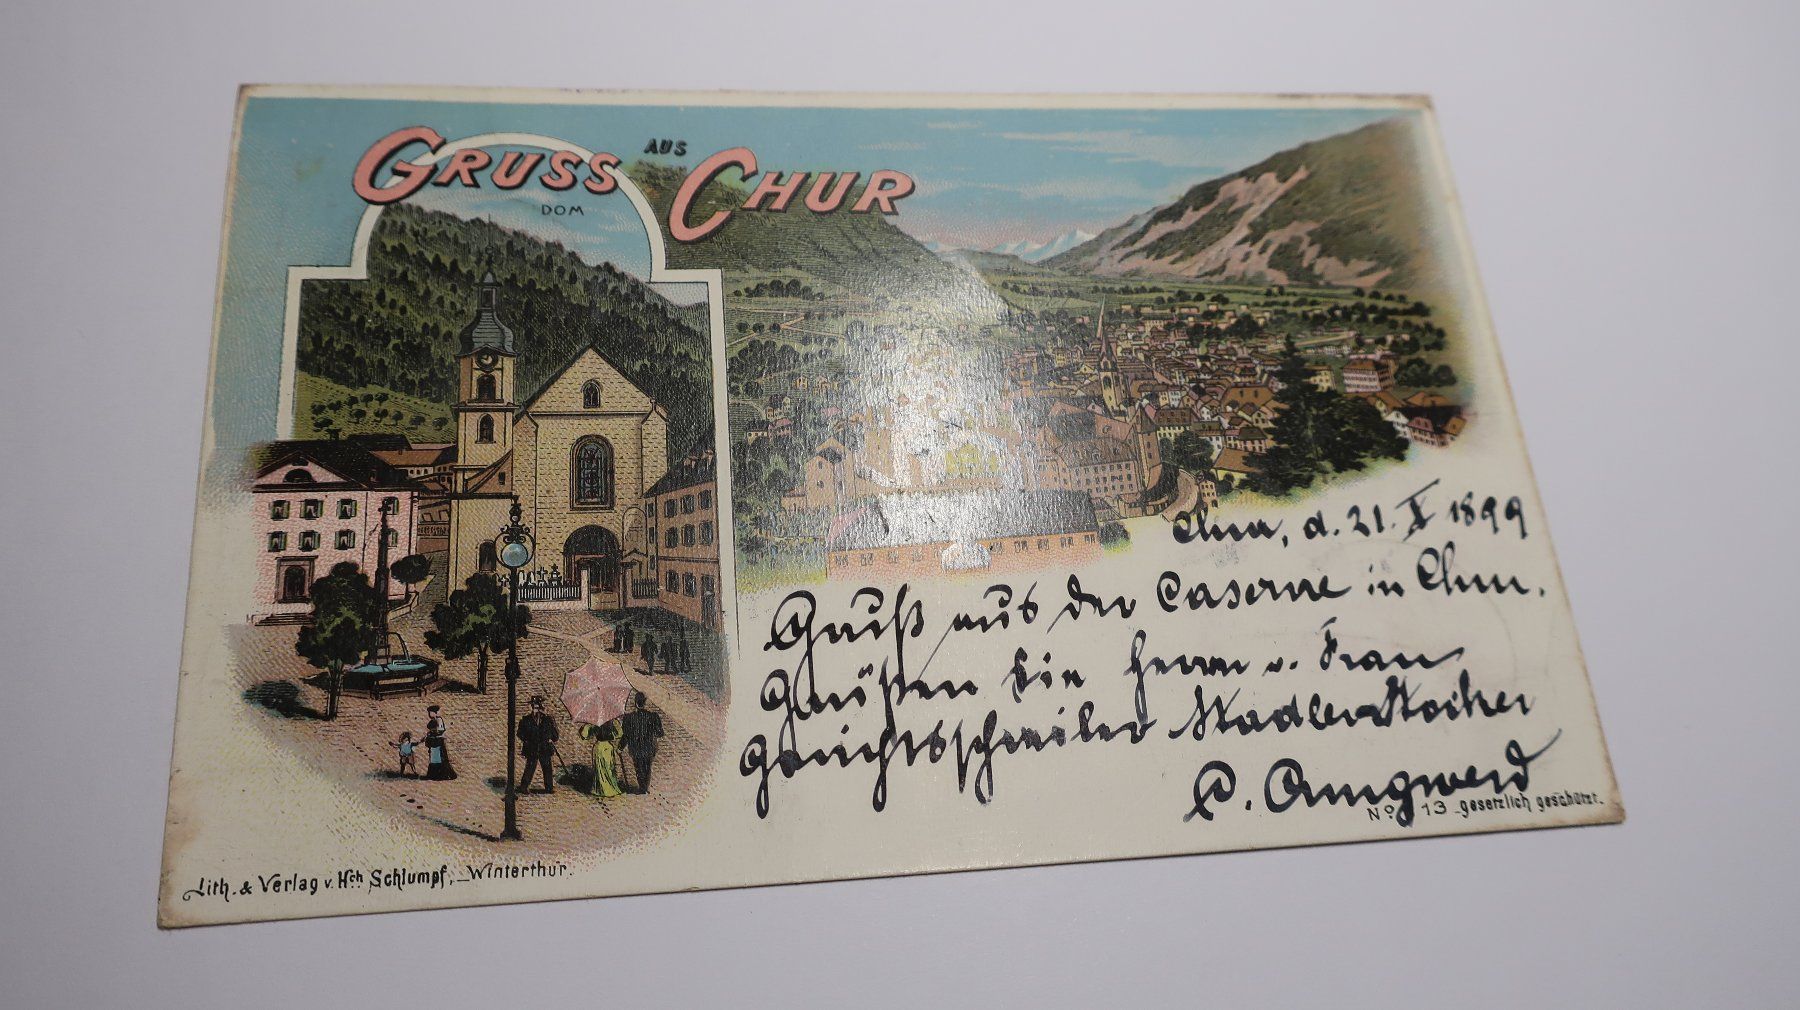 GRUSS AUS CHUR
DOM
Chur, d. 21. X 1899
Gruß aus der Caserne in Chur.
Grüßen Sie Herrn u. Frau
Gerichtsschreiber
Lith. & Verlag v. Hch Schlumpf, Winterthur.
No 13 gesetzlich geschützt.